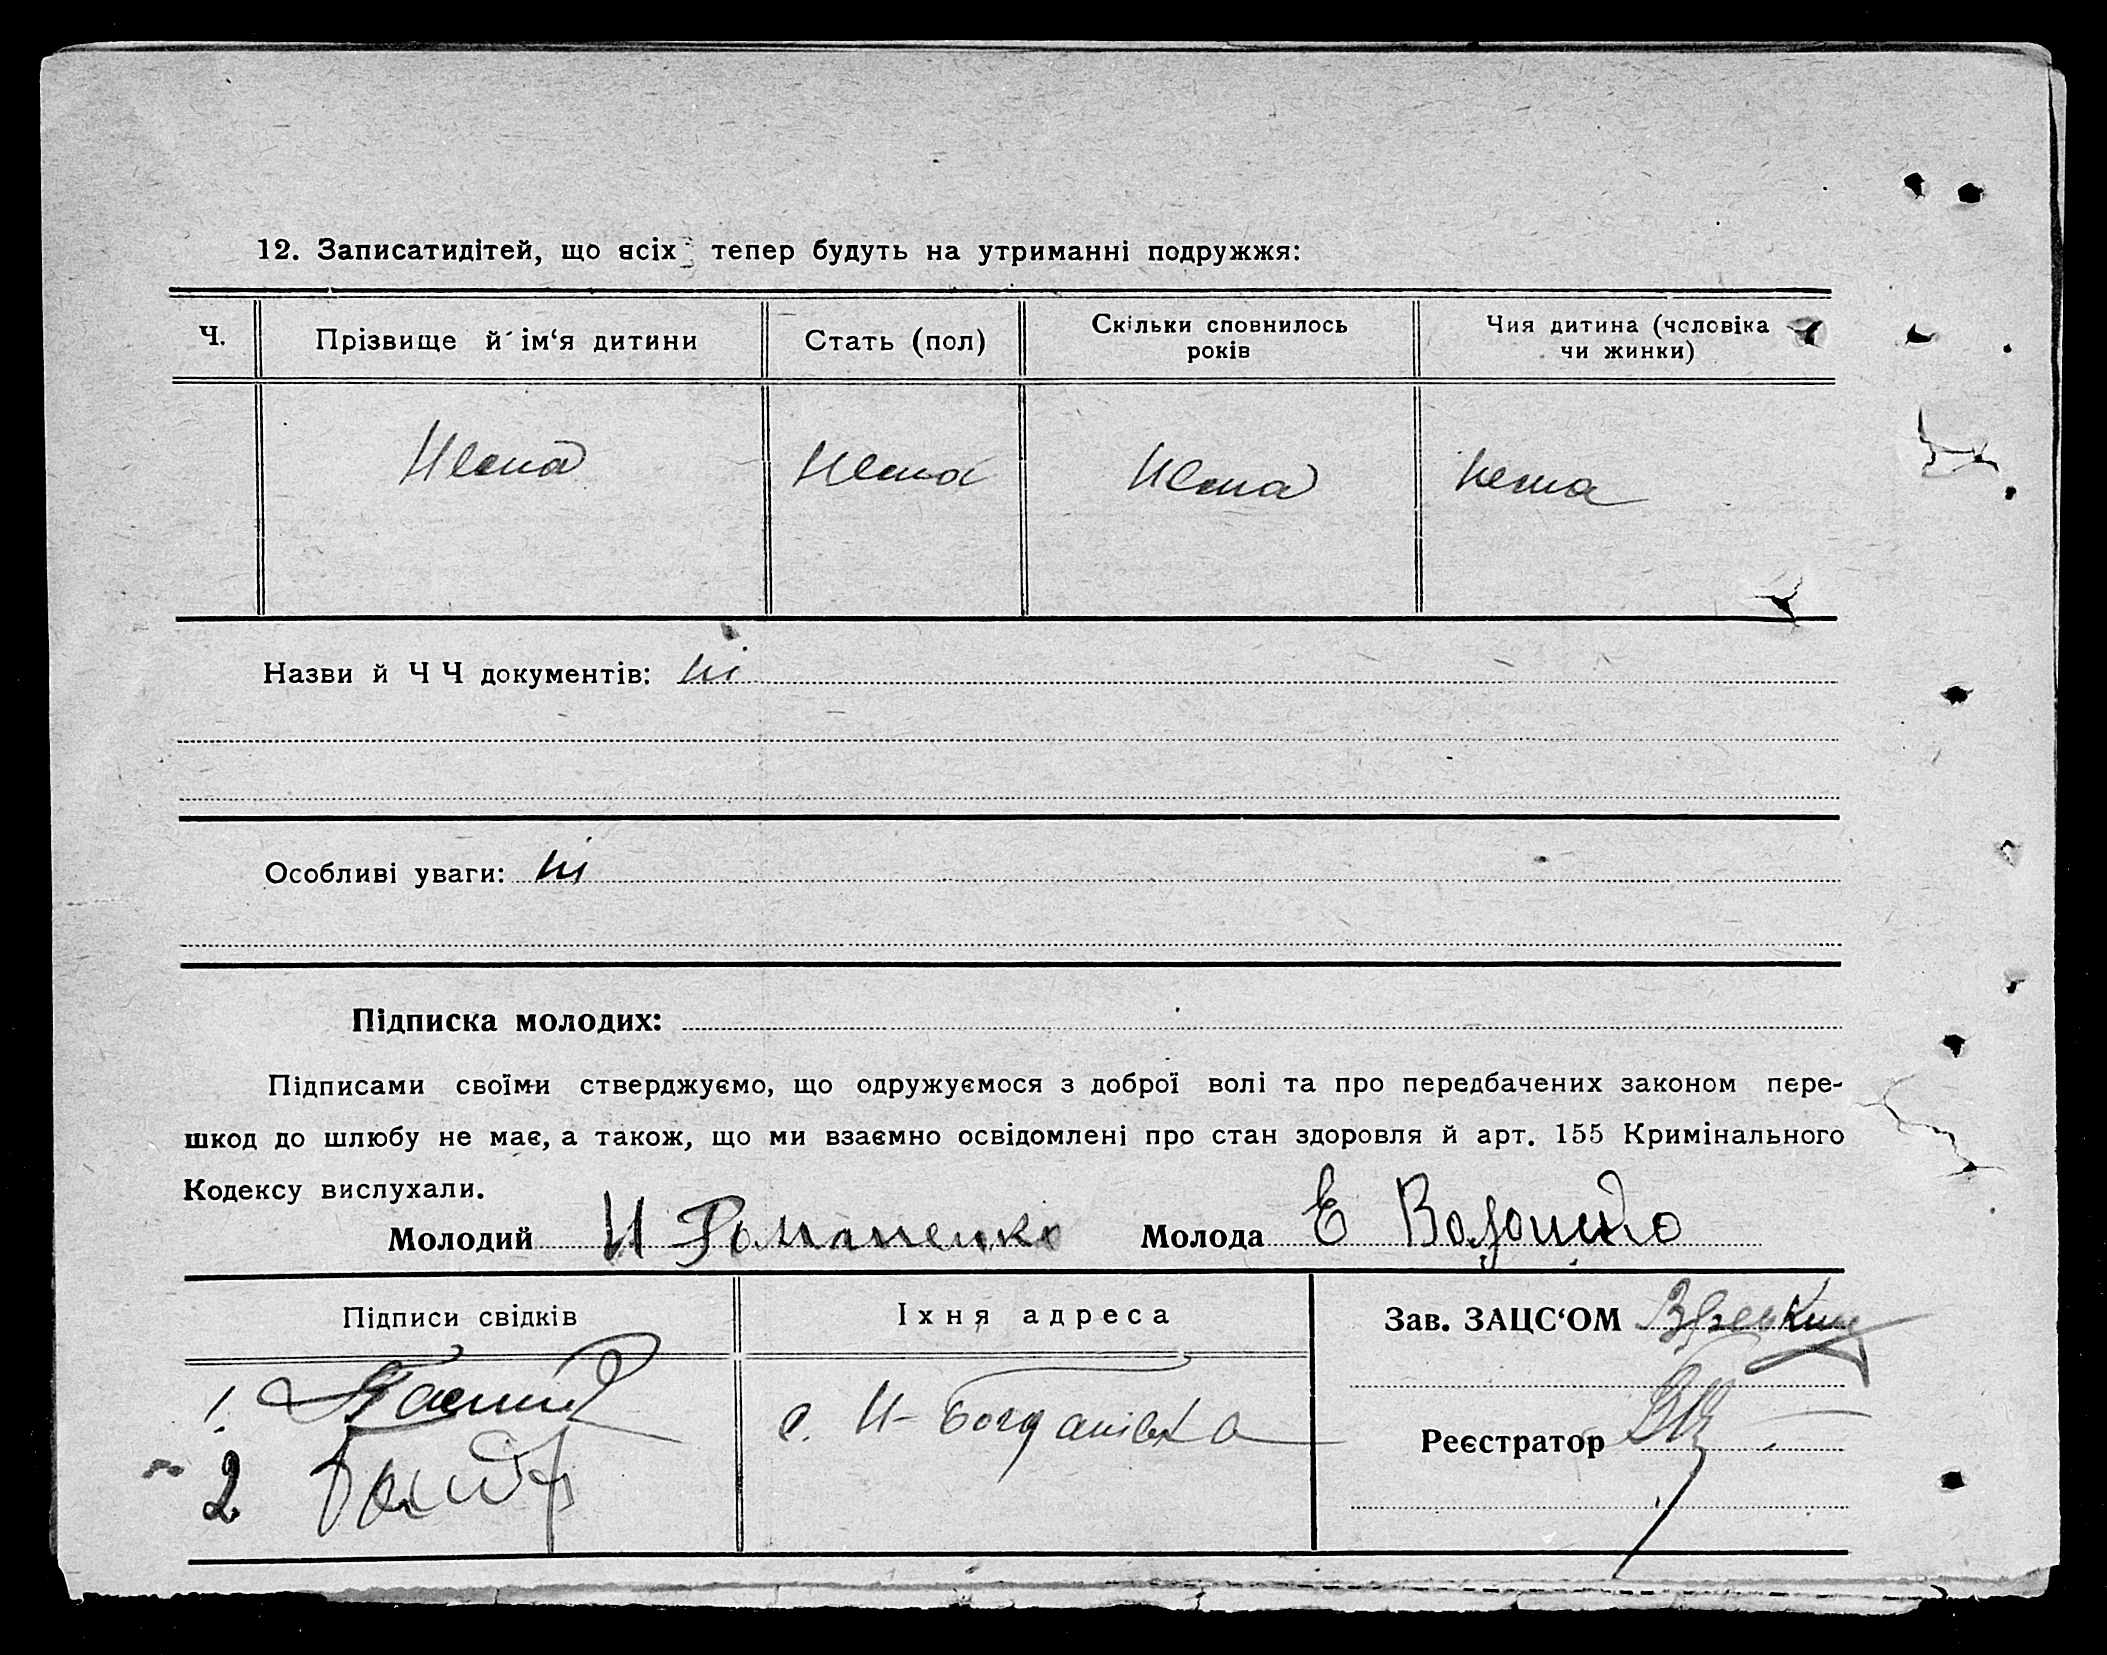 12. Записатидітей, що всіх тепер будуть на утриманні подружжя:
Ч.
Прізвище й ім‘я дитини
Стать (пол)
Скільки сповнилось
років
Чия дитина (чсловіка
чи жинки)
Нема
Нема
Нема
Нема
Назви й Ч Ч документів: ні
Особливі уваги: ні
Підписка молодих:
Підписами своїми стверджуємо, що одружуємося з доброї волі та про передбачених законом пере-
шкод до шлюбу не має, а також, що ми взаємно освідомлені про стан здоровля й арт. 155 Кримінального
Кодексу вислухали.
Молодий И Романенко Молода Е Волошино
Підписи свідків
Їхня адреса
Зав. ЗАЦС‘ОМ
1.
с. Н-Богданівка
Реєстратор
2